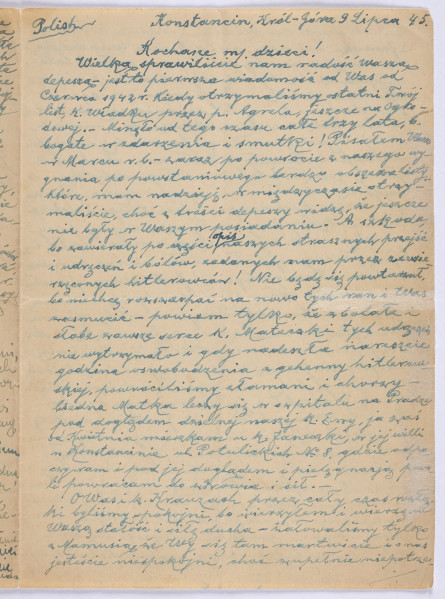 Polish
Konstancin, Król-Góra 9 Lipca 45.
Kochane mj dzieci!
Wielką sprawiliście nam radość Waszą
depeszą – jest to pierwsza wiadomość od Was od
Czerwca 1942 r. kiedy otrzymaliśmy ostatni Twój
list, K. Władku przez p. Agrela, jeszcze na Ogro-
dowej... Minęło od tego czasu całe trzy lata, b.
bogate w zdarzenia i smutki! Pisałem Wam
w Marcu r. b. – zaraz po powrocie z naszego wy-
gnania po powstaniowego bardzo obszerne listy
które, mam nadzieję, w międzyczasie otrzy-
maliście, choć z treści depeszy widzę, że jeszcze
nie były w Waszym posiadaniu. A szkoda,
bo zawierały po części opis naszych strasznych przejść
i udręczeń i bólów, zadanych nam przez
hitlerowców! Nie będę się powtarzał,
bo nie chcę rozszarpać na nowo tych ran i Was
zasmucić – powiem tylko, że zbolałe i
słabe zawsze serce K. Mateczki tych udręczeń
nie wytrzymało i gdy nadeszła nareszcie
godzina oswobodzenia z gehenny hitlerow-
skiej, powróciliśmy złamani i chorzy –
biedna Matka leczy się w szpitalu na Pradze
pod doglądem dzielnej naszej K. Ewy, ja zaś
od Kwietnia mieszkam u K. Janeczki, w jej willi
w Konstancinie ul. Potulickich № 8, gdzie odpo-
czywam i pod jej doglądem i pielęgnacją
powracam do zdrowia i sił. –
O Was i K. Krauzach przez cały czas
byliśmy spokojni, bo wierzyłem i wierzę w
Waszą stałość i siłę ducha – żałowaliśmy tylko
z Mamusią że Wy się tam martwicie o nas i
jesteście niespokojni, choć zupełnie niepotrze-